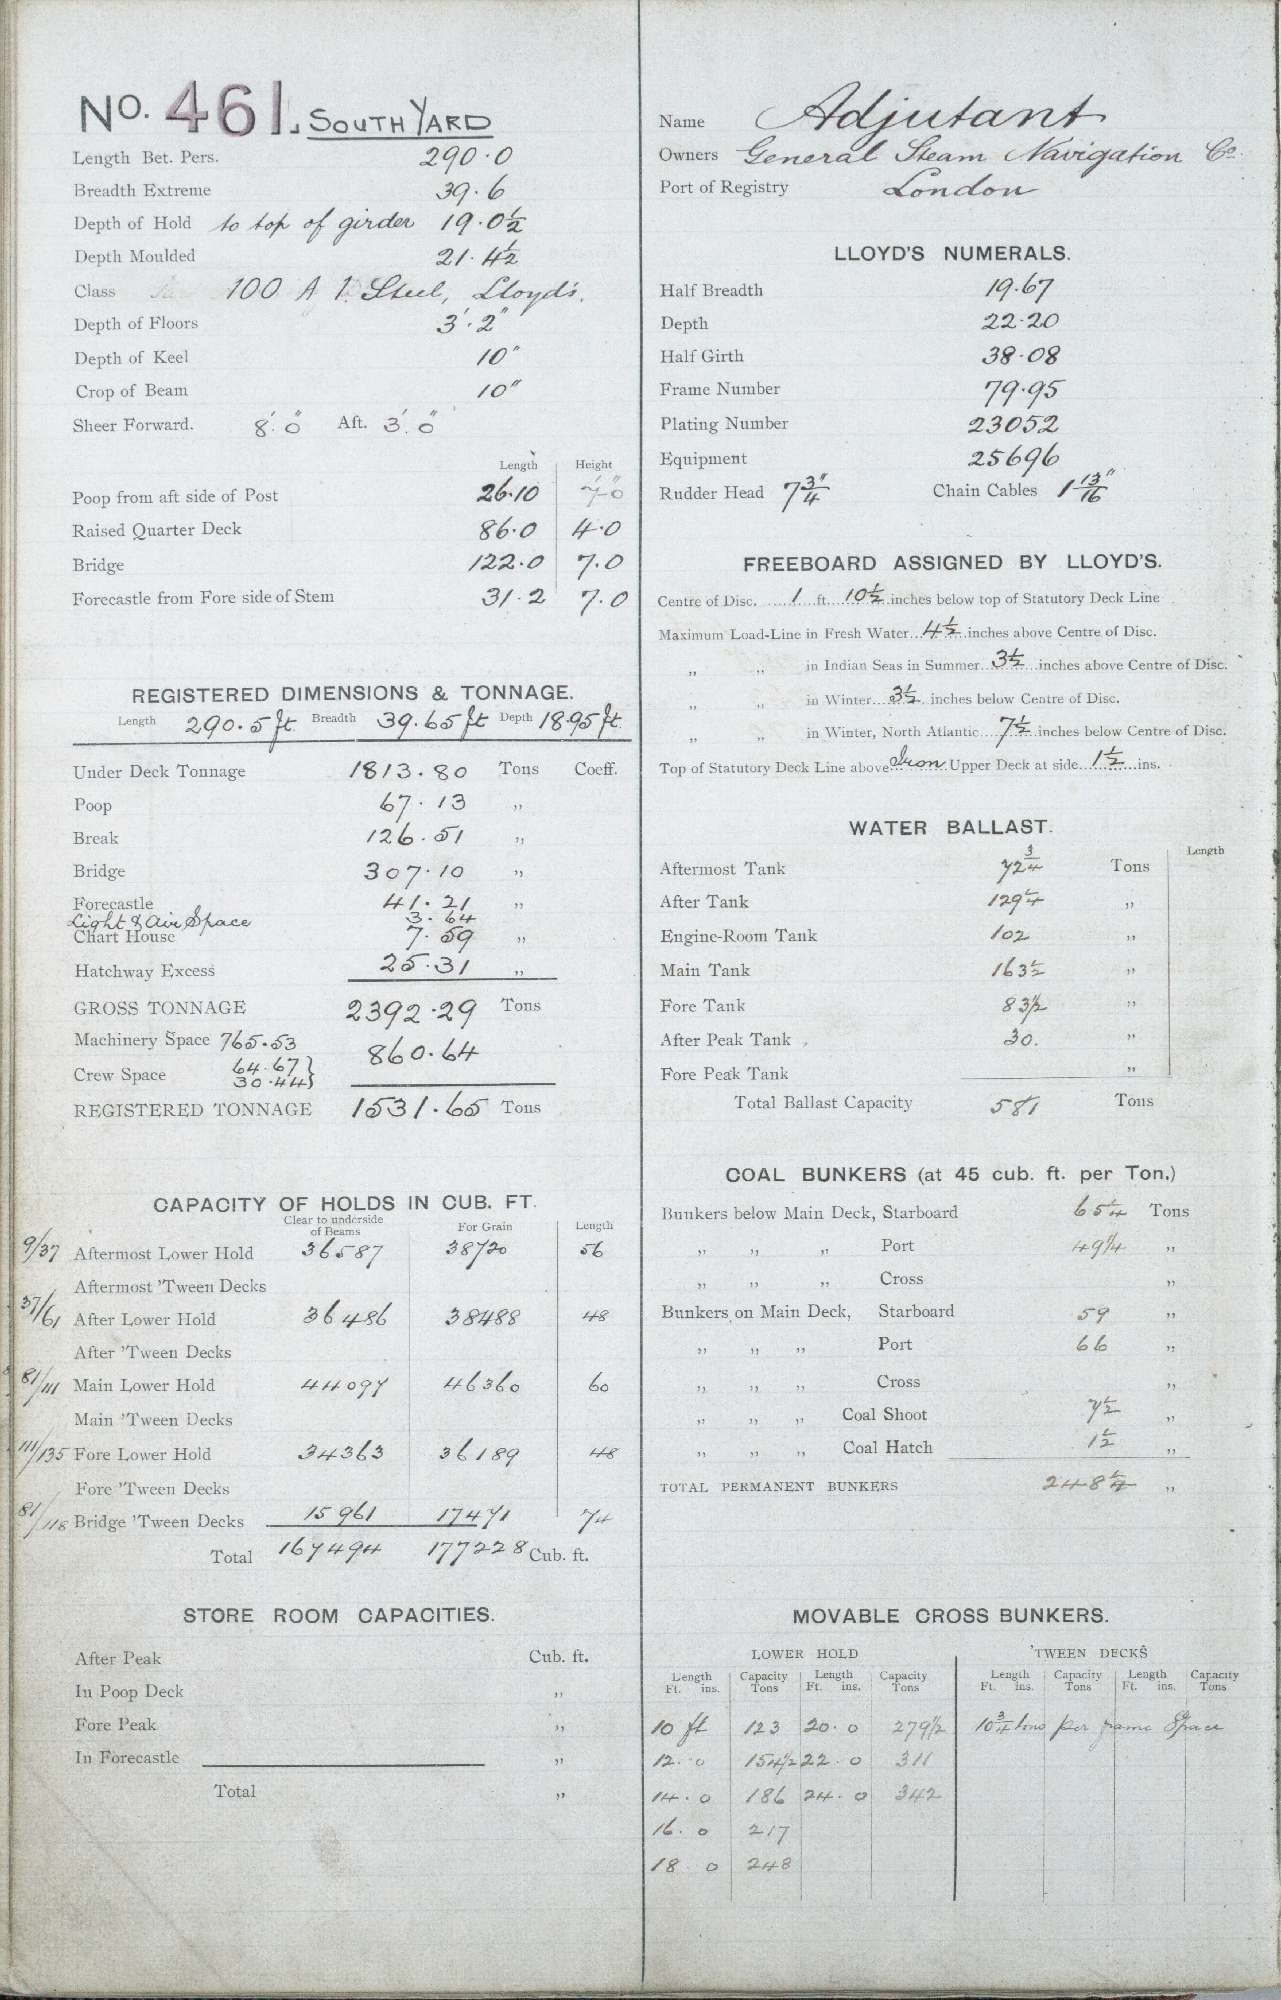 No. 461. SOUTH YARD
Length Bet. Pers. 290.0
Breadth Extreme 39.6
Depth of Hold to top of girder 19.0½
Depth Moulded 21.4½
Class 100 A 1. Steel, Lloyd's.
Depth of Floors 3'.2"
Depth of Keel 10"
Crop of Beam 10"
Sheer Forward. 8'.0" Aft. 3'.0"
Length Height
Poop from aft side of Post 26.10 7'.0"
Raised Quarter Deck 86.0 4.0
Bridge 122.0 7.0
Forecastle from Fore side of Stem 31.2 7.0
REGISTERED DIMENSIONS & TONNAGE.
Length 290.5 ft. Breadth 39.65 ft Depth 18.95 ft.
Under Deck Tonnage 1813.80 Tons Coeff.
Poop 67.13 „
Break 126.51 „
Bridge 307.10 „
Forecastle 41.21 „
Light & Air Space 3.64
Chart House 7.59 „
Hatchway Excess 25.31 „
GROSS TONNAGE 2392.29 Tons
Machinery Space 765.53
860.64
Crew Space 64.67}
30.44}
REGISTERED TONNAGE 1531.65 Tons
CAPACITY OF HOLDS IN CUB. FT.
Clear to underside of Beams For Grain Length
9/37 Aftermost Lower Hold 36587 38720 56
Aftermost 'Tween Decks
37/61 After Lower Hold 36486 38488 48
After 'Tween Decks
81/111 Main Lower Hold 44097 46360 60
Main 'Tween Decks
111/135 Fore Lower Hold 34363 36189 48
Fore 'Tween Decks
81/118 Bridge 'Tween Decks 15961 17471 74
Total 167494 177228 Cub. ft.
STORE ROOM CAPACITIES.
After Peak Cub. ft.
In Poop Deck „
Fore Peak „
In Forecastle „
Total „
Name Adjutant
Owners General Steam Navigation Co.
Port of Registry London
LLOYD'S NUMERALS.
Half Breadth 19.67
Depth 22.20
Half Girth 38.08
Frame Number 79.95
Plating Number 23052
Equipment 25696
Rudder Head 7¾" Chain Cables 1 13/16"
FREEBOARD ASSIGNED BY LLOYD'S.
Centre of Disc. 1 ft. 10½ inches below top of Statutory Deck Line
Maximum Load-Line in Fresh Water 4½ inches above Centre of Disc.
„ „ in Indian Seas in Summer 3½ inches above Centre of Disc.
„ „ in Winter 3½ inches below Centre of Disc.
„ „ in Winter, North Atlantic 7½ inches below Centre of Disc.
Top of Statutory Deck Line above Iron Upper Deck at side 1½ ins.
WATER BALLAST.
Length
Aftermost Tank 72¾ Tons
After Tank 129¼ „
Engine-Room Tank 102 „
Main Tank 163½ „
Fore Tank 83½ „
After Peak Tank 30. „
Fore Peak Tank „
Total Ballast Capacity 581 Tons
COAL BUNKERS (at 45 cub. ft. per Ton.)
Bunkers below Main Deck, Starboard 65¼ Tons
„ „ „ Port 49¼ „
„ „ „ Cross „
Bunkers on Main Deck, Starboard 59 „
„ „ „ Port 66 „
„ „ „ Cross „
„ „ „ Coal Shoot 7½ „
„ „ „ Coal Hatch 1½ „
TOTAL PERMANENT BUNKERS 248¼ „
MOVABLE CROSS BUNKERS.
LOWER HOLD 'TWEEN DECKS
Length Capacity Length Capacity Length Capacity Length Capacity
Ft. ins. Tons Ft. ins. Tons Ft. ins. Tons Ft. ins. Tons
10 ft 123 20.0 279½ 10¾ tons per frame Space
12.0 154½ 22.0 311
14.0 186 24.0 342
16.0 217
18.0 248